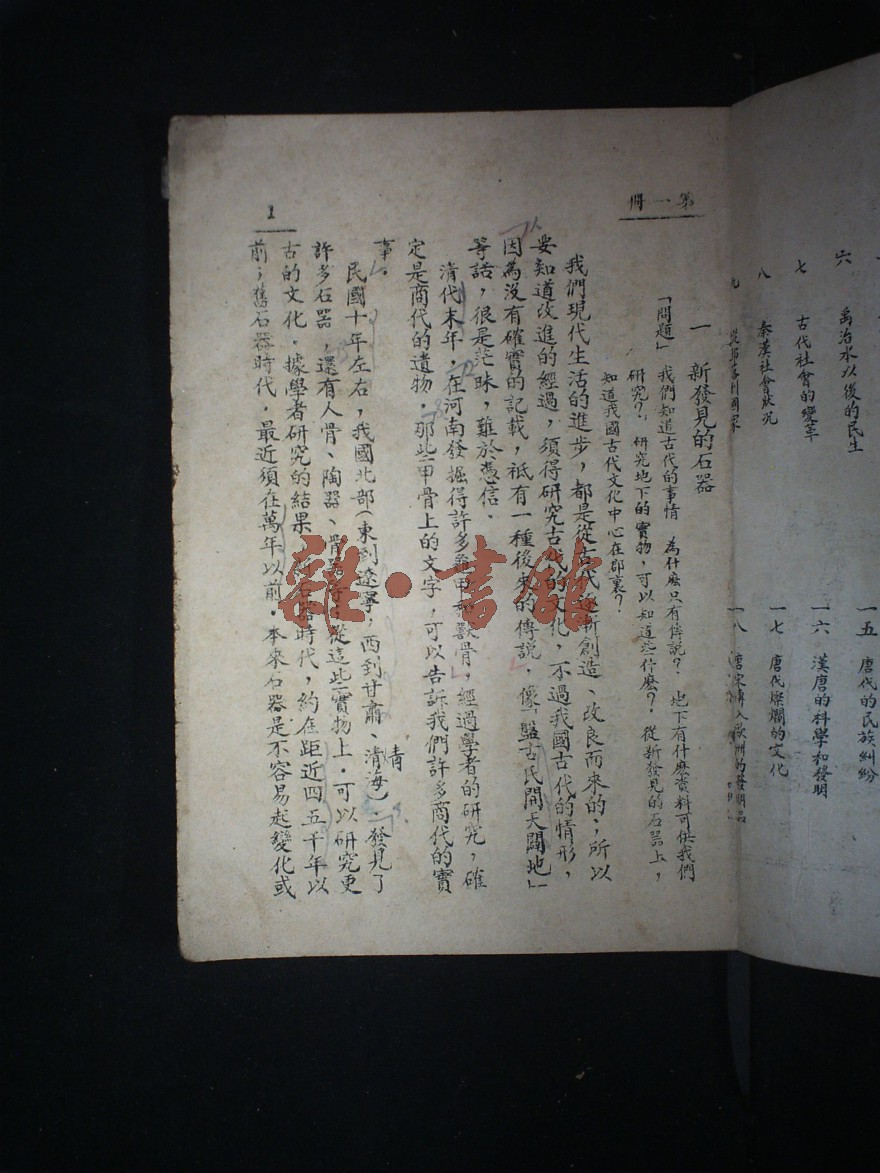 六 禹治水以後的民生
七 古代社會的變革
八 秦漢社會狀況
一五 唐代的民族糾紛
一六 漢唐的科學和發明
一七 唐代燦爛的文化
一八 唐宋傳入歐洲的發明品
第一冊
一 新發見的石器
「問題」 我們知道古代的事情 為什麼只有傳說？ 地下有什麼資料可供我們
研究？ 研究地下的實物，可以知道些什麼？ 從新發見的石器上，
知道我國古代文化中心在那裏？
我們現代生活的進步，都是從古代逐漸創造、改良而來的；所以
要知道改進的經過，須得研究古代的文化，不過我國古代的情形，
因為沒有確實的記載，祇有一種後來的傳說．像「盤古氏開天闢地」
等話，很是茫昧，難於憑信．
清代末年，在河南發掘得許多龜甲和獸骨，經過學者的研究，確
定是商代的遺物．那些甲骨上的文字，可以告訴我們許多商代的實
事．
民國十年左右，我國北部(東到遼寧，西到甘肅、清海)；發見了
青
許多石器，還有人骨、陶器、骨器等，從這些實物上．可以研究更
古的文化．據學者研究的結果，新石器時代，約在距近四五千年以
前；舊石器時代．最近須在萬年以前．本來石器是不容易起變化或
1
龍·書館